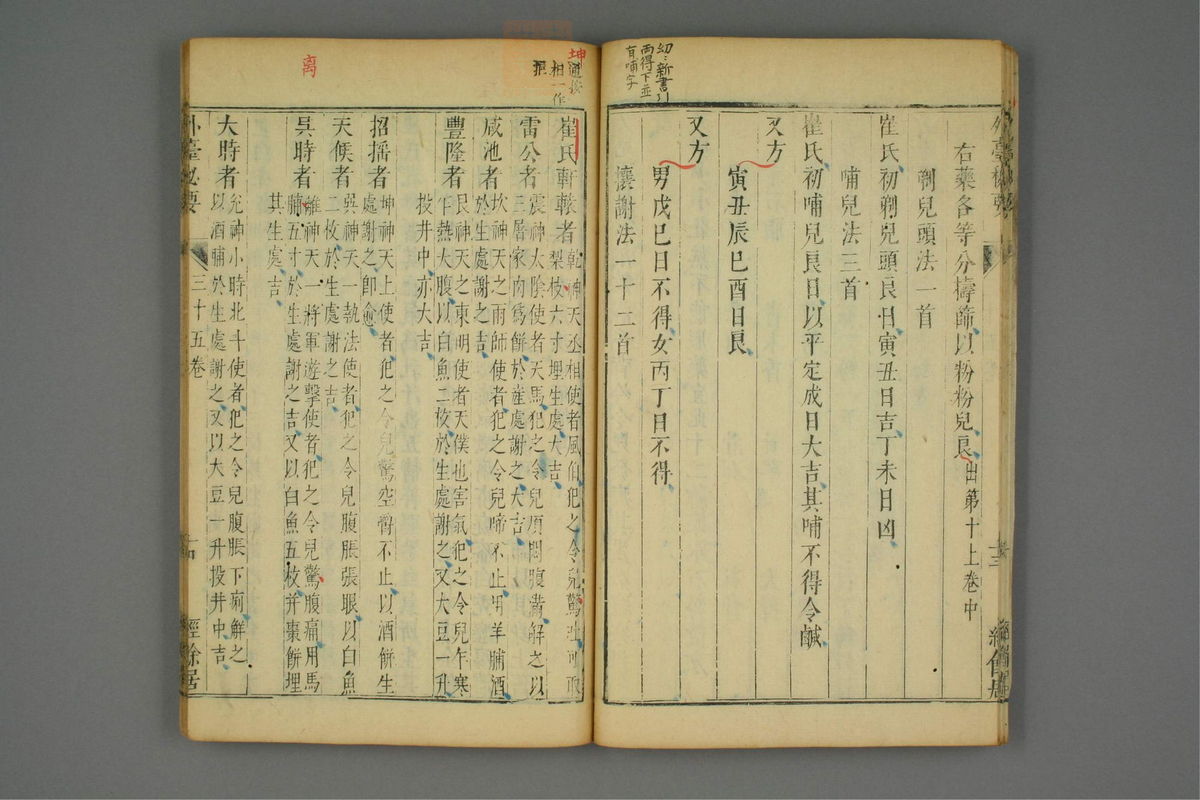 幼〻新書引
両得下並
有哺字
右藥各等分擣篩以粉粉兒良出第十上卷中
剃兒頭法一首
崔氏初剃兒頭良日寅丑日吉丁未日凶
哺兒法三首
崔氏初哺兒良日以平定成日大吉其哺不得令鹹
又方
寅丑辰巳酉日良
又方
男戊巳日不得女丙丁日不得
禳謝法一十二首
坤
相一作
崔氏軒轅者乾神天丞相使者風伯犯之令兒驚吐可取
梨枝六寸埋生處大吉
雷公者震神太陰使者天馬犯之令兒煩悶腹滿解之以
三層家肉爲餅於產處謝之大吉
咸池者坎神天之雨師使者犯之令兒啼不止用羊脯酒
於生處謝之吉
豐隆者艮神天之東明使者天僕也害氣犯之令兒乍寒
乍熱大腹以白魚二枚於生處謝之又大豆一升
投井中亦大吉
招搖者坤神天上使者犯之令兒驚空㗋不止以酒餅生
處謝之即愈
天候者㒷神天一執法使者犯之令兒腹脹張眼以白魚
二枚於生處謝之吉
吳時者離神天一將軍遊擊使者犯之令兒驚腹痛用馬
脯五寸於生處謝之吉又以白魚五枚并棗餅埋
其生處吉
离
大時者兊神小時北斗使者犯之令兒腹脹下痢解之
以酒脯於生處謝之又以大豆一升投井中吉
外臺秘要
三十五卷
十四
經餘居